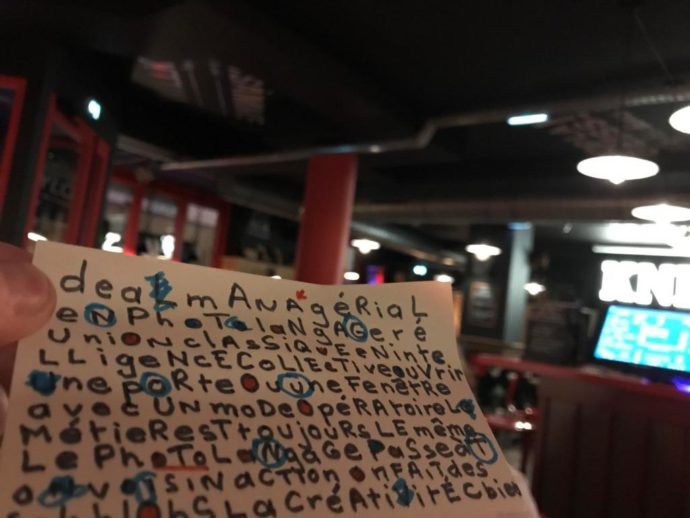 deaLmANAgéRiaL
eNPhoToLaNgAGeré
UNionclAssiqueeNiNte
LLigeNcECoLLEcTiveouVrir
UnePORteOuuNeFeNêtRe
avecUNmoDeOpéRAtoireLe
MétieResTToujoURsLEmêmE
LePhoToLaNgAGePasseàT
SiNACTioN oNFAiTdes
LACRéATiViTÉCbieN
KN